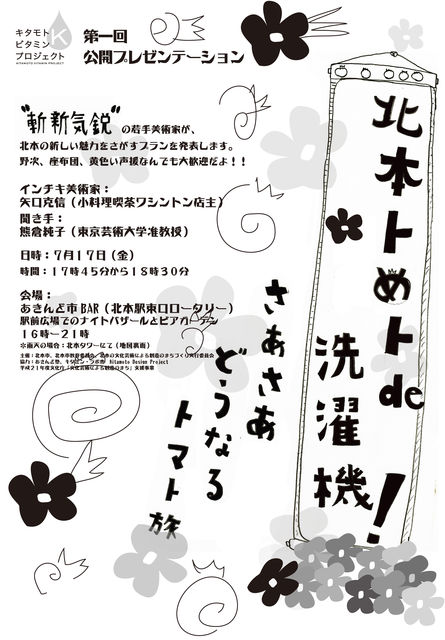 キタモト
ビタミン
プロジェクト
KITAMOTO VITAMIN PROJECT
K
第一回
公開プレゼンテーション
"斬新気鋭"の若手美術家が、
北本の新しい魅力をさがすプランを発表します。
野次、座布団、黄色い声援なんでも大歓迎だよ！！
インチキ美術家：
矢口克信（小料理喫茶ワシントン店主）
聞き手：
熊倉純子（東京芸術大学准教授）
日時：７月１７日（金）
時間：１７時４５分から１８時３０分
会場：
あきんど市BAR（北本駅東口ロータリー）
駅前広場でのナイトバザールとビアガーデン
１６時〜２１時
※雨天の場合：北本タワーにて（地図裏面）
平成２１年度文化庁「文化芸術による創造のまち」支援事業
北本トめトde
洗濯機！
さあさあ
どうなる
トマト族